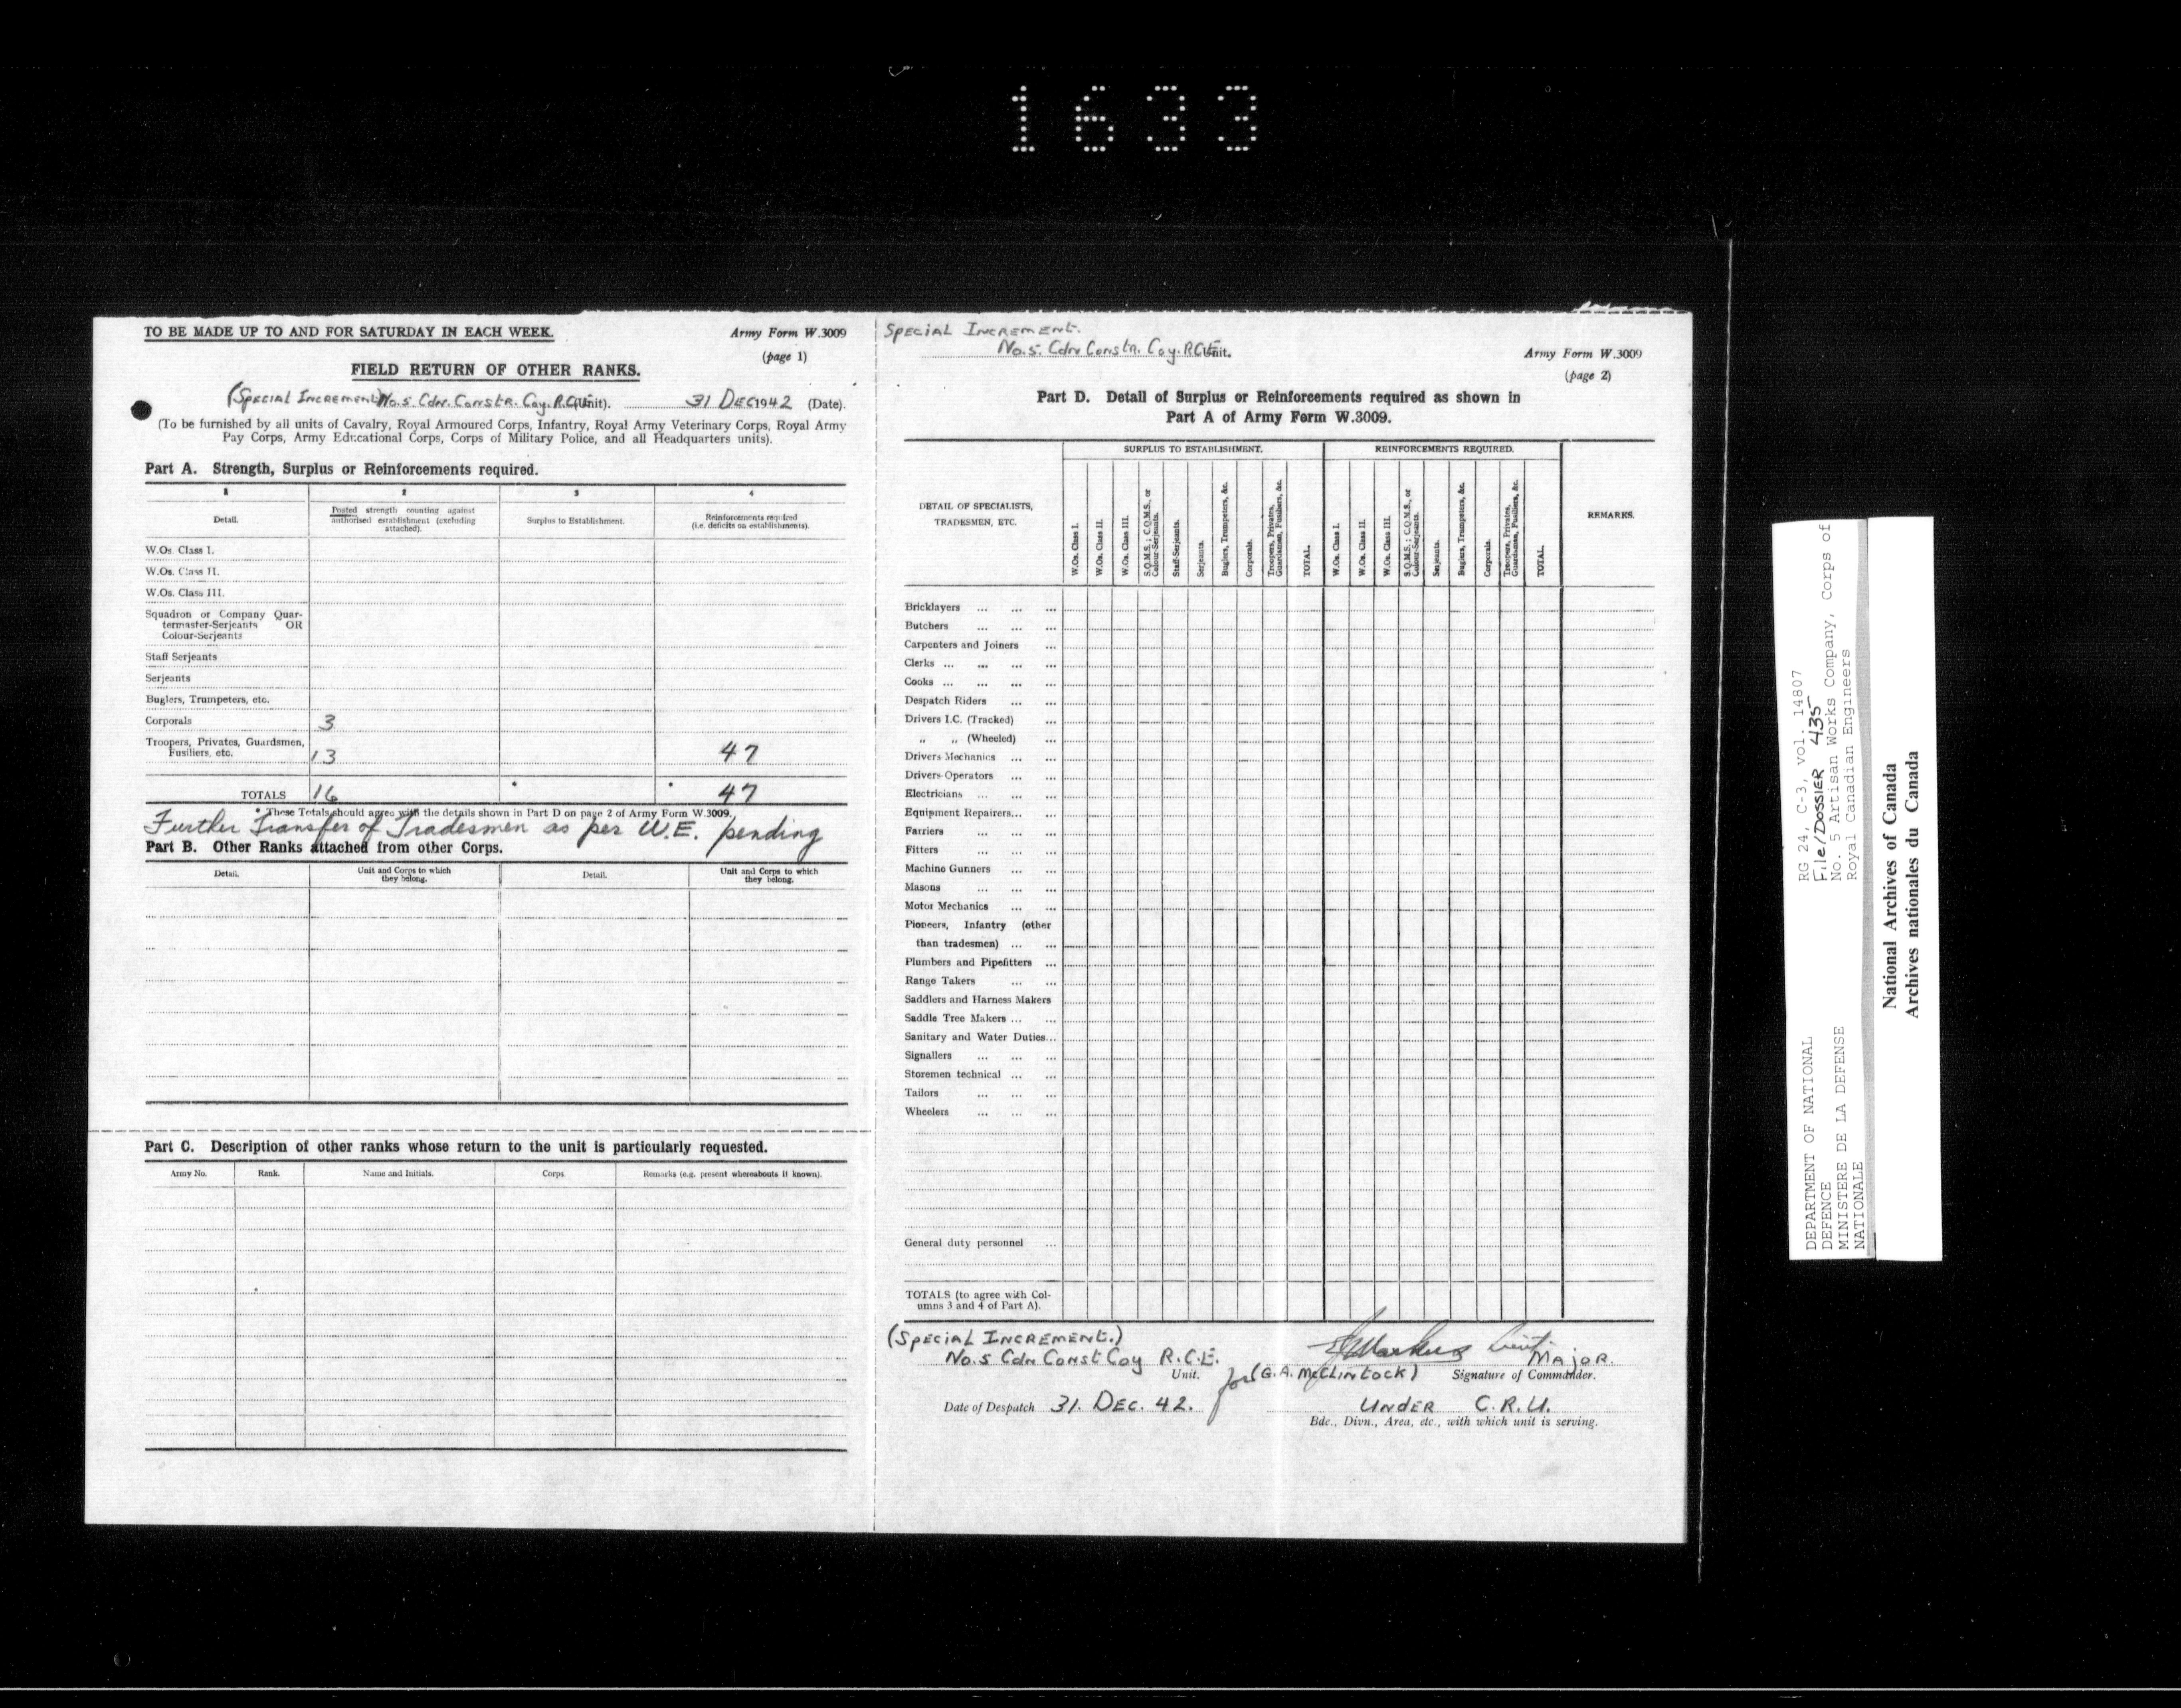 1633
TO BE MADE UP TO AND FOR SATURDAY IN EACH WEEK.
Army Form W.3009
(page 1)
FIELD RETURN OF OTHER RANKS.
(SPECIAL INCREMENT) No. 5. Cdn. Constr. Coy. R.C.E. (Unit). 31 DEC 1942 (Date).
(To be furnished by all units of Cavalry, Royal Armoured Corps, Infantry, Royal Army Veterinary Corps, Royal Army
Pay Corps, Army Educational Corps, Corps of Military Police, and all Headquarters units).
Part A. Strength, Surplus or Reinforcements required.
1 2 3 4
Detail.
Posted strength counting against
authorised establishment (excluding
attached).
Surplus to Establishment.
Reinforcements required
(i.e. deficits on establishments).
W.Os. Class I.
W.Os. Class II.
W.Os. Class III.
Squadron or Company Quar-
termaster-Serjeants OR
Colour-Serjeants
Staff Serjeants
Serjeants
Buglers, Trumpeters, etc.
Corporals 3
Troopers, Privates, Guardsmen,
Fusiliers, etc. 13 47
TOTALS 16 * * 47
* These Totals should agree with the details shown in Part D on page 2 of Army Form W.3009.
Further Transfer of Tradesmen as per W.E. pending
Part B. Other Ranks attached from other Corps.
Detail.
Unit and Corps to which
they belong.
Detail.
Unit and Corps to which
they belong.
Part C. Description of other ranks whose return to the unit is particularly requested.
Army No. Rank. Name and Initials. Corps. Remarks (e.g. present whereabouts if known).
SPECIAL INCREMENT.
No. 5. Cdn Constr. Coy. R.C.E. Unit.
Army Form W.3009
(page 2)
Part D. Detail of Surplus or Reinforcements required as shown in
Part A of Army Form W.3009.
DETAIL OF SPECIALISTS,
TRADESMEN, ETC.
SURPLUS TO ESTABLISHMENT.
W.Os. Class I.
W.Os. Class II.
W.Os. Class III.
S.Q.M.S.; C.Q.M.S., or
Colour-Serjeants.
Staff-Serjeants.
Serjeants.
Buglers, Trumpeters, &c.
Corporals.
Troopers, Privates,
Guardsmen, Fusiliers, &c.
TOTAL.
REINFORCEMENTS REQUIRED.
W.Os. Class I.
W.Os. Class II.
W.Os. Class III.
S.Q.M.S.; C.Q.M.S., or
Colour-Serjeants.
Serjeants.
Buglers, Trumpeters, &c.
Corporals.
Troopers, Privates,
Guardsmen, Fusiliers, &c.
TOTAL.
REMARKS.
Bricklayers ... ... ...
Butchers ... ... ...
Carpenters and Joiners ...
Clerks ... ... ... ...
Cooks ... ... ... ...
Despatch Riders ... ...
Drivers I.C. (Tracked) ...
„ „ (Wheeled) ...
Drivers Mechanics ... ...
Drivers Operators ... ...
Electricians ... ... ...
Equipment Repairers... ...
Farriers ... ... ...
Fitters ... ... ...
Machine Gunners ... ...
Masons ... ... ...
Motor Mechanics ... ...
Pioneers, Infantry (other
than tradesmen) ... ...
Plumbers and Pipefitters ...
Range Takers ... ...
Saddlers and Harness Makers
Saddle Tree Makers ... ...
Sanitary and Water Duties...
Signallers ... ... ...
Storemen technical ... ...
Tailors ... ... ...
Wheelers ... ... ...
General duty personnel ...
TOTALS (to agree with Col-
umns 3 and 4 of Part A).
(SPECIAL INCREMENT.)
No. 5 Cdn Const Coy R.C.E.
Unit.
Lieut.
MAJOR.
for (G. A. McCLINTOCK) Signature of Commander.
Date of Despatch 31. DEC. 42.
UNDER C.R.U.
Bde., Divn., Area, etc., with which unit is serving.
DEPARTMENT OF NATIONAL
DEFENCE
MINISTERE DE LA DEFENSE
NATIONALE
RG 24, C-3, vol. 14807
File/DOSSIER 435
No. 5 Artisan Works Company, Corps of
Royal Canadian Engineers
National Archives of Canada
Archives nationales du Canada